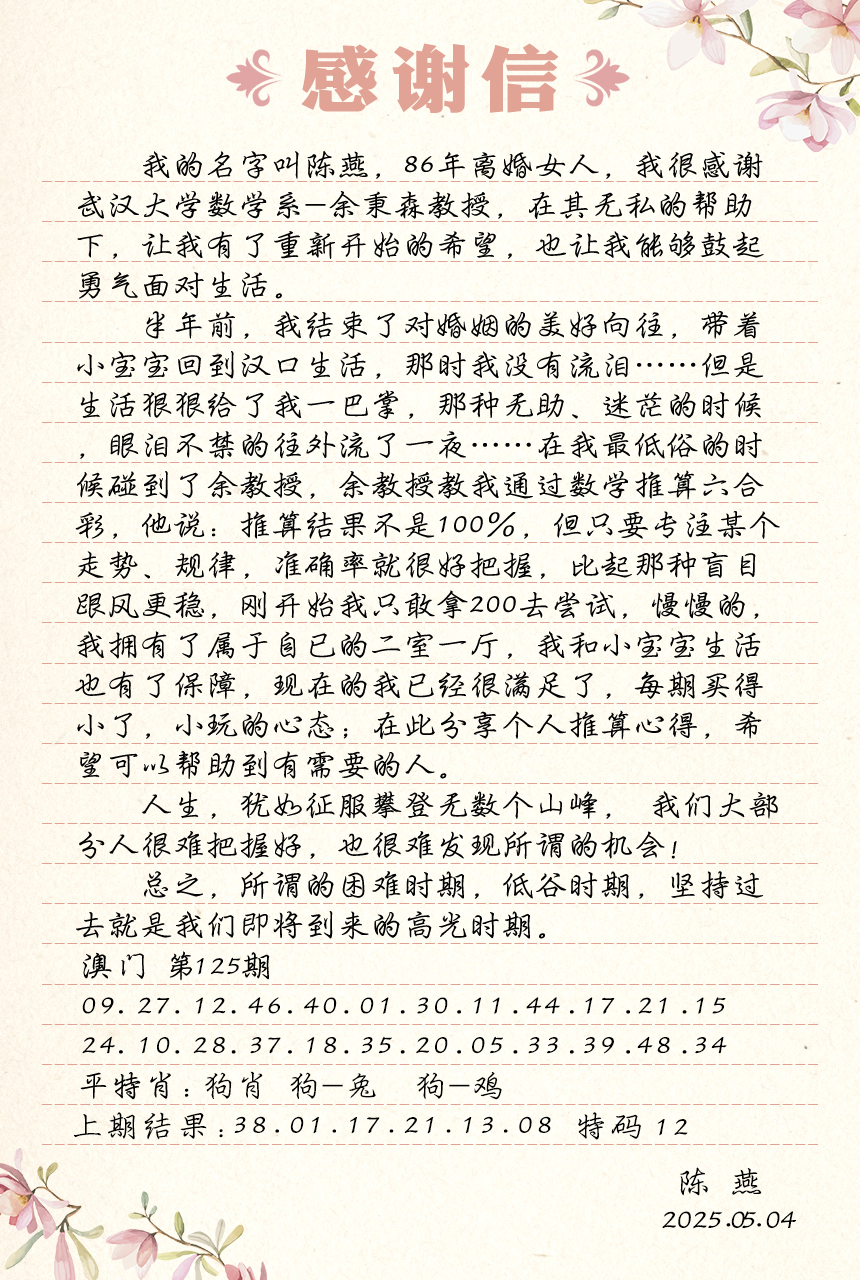 感谢信
我的名字叫陈燕，86年离婚女人，我很感谢
武汉大学数学系—余秉森教授，在其无私的帮助
下，让我有了重新开始的希望，也让我能够鼓起
勇气面对生活。
半年前，我结束了对婚姻的美好向往，带着
小宝宝回到汉口生活，那时我没有流泪……但是
生活狠狠给了我一巴掌，那种无助、迷茫的时候
，眼泪不禁的往外流了一夜……在我最低俗的时
候碰到了余教授，余教授教我通过数学推算六合
彩，他说：推算结果不是100%，但只要专注某个
走势、规律，准确率就很好把握，比起那种盲目
跟风更稳，刚开始我只敢拿200去尝试，慢慢的，
我拥有了属于自已的二室一厅，我和小宝宝生活
也有了保障，现在的我已经很满足了，每期买得
小了，小玩的心态；在此分享个人推算心得，希
望可以帮助到有需要的人。
人生，犹如征服攀登无数个山峰， 我们大部
分人很难把握好，也很难发现所谓的机会！
总之，所谓的困难时期，低谷时期，坚持过
去就是我们即将到来的高光时期。
澳门 第125期
09.27.12.46.40.01.30.11.44.17.21.15
24.10.28.37.18.35.20.05.33.39.48.34
平特肖：狗肖 狗—兔 狗—鸡
上期结果：38.01.17.21.13.08 特码 12
陈 燕
2025.05.04